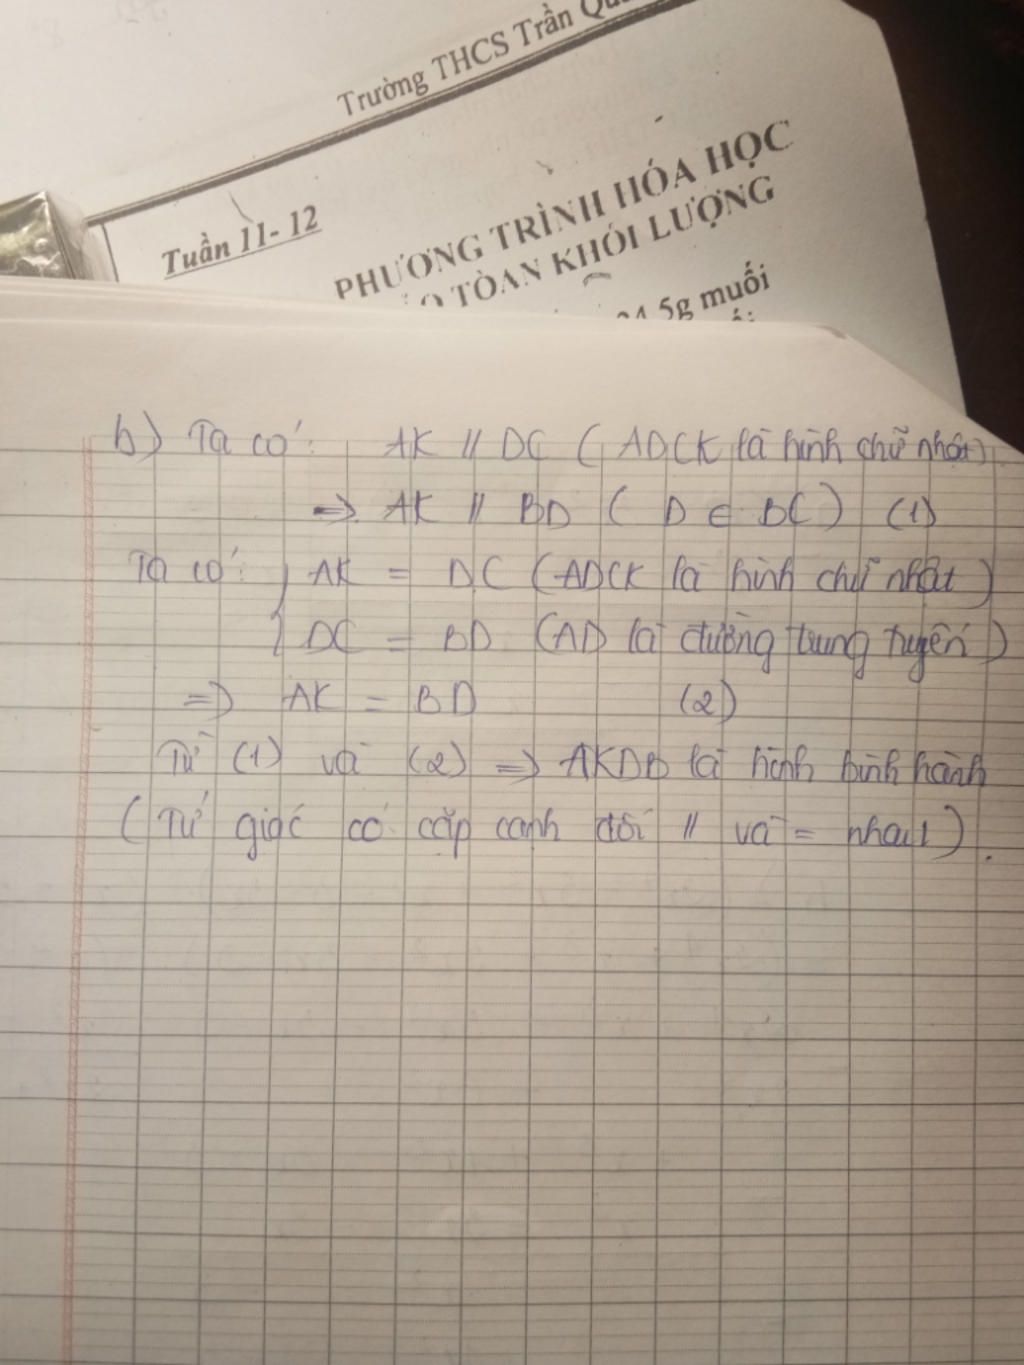 Trường THCS Trần
Tuần 11- 12
PHƯƠNG TRÌNH HÓA HỌC
TÒAN KHỐI LƯỢNG
5g muối
b) Ta có: AK // DC ( ADCK là hình chữ nhật)
=> AK // BD ( D ∈ BC ) (1)
Ta có: { AK = DC ( ADCK là hình chữ nhật )
DC = BD (AD là đường trung tuyến )
=> AK = BD (2)
Từ (1) và (2) => AKDB là hình bình hành
( Tứ giác có cặp cạnh đối // và = nhau ) .